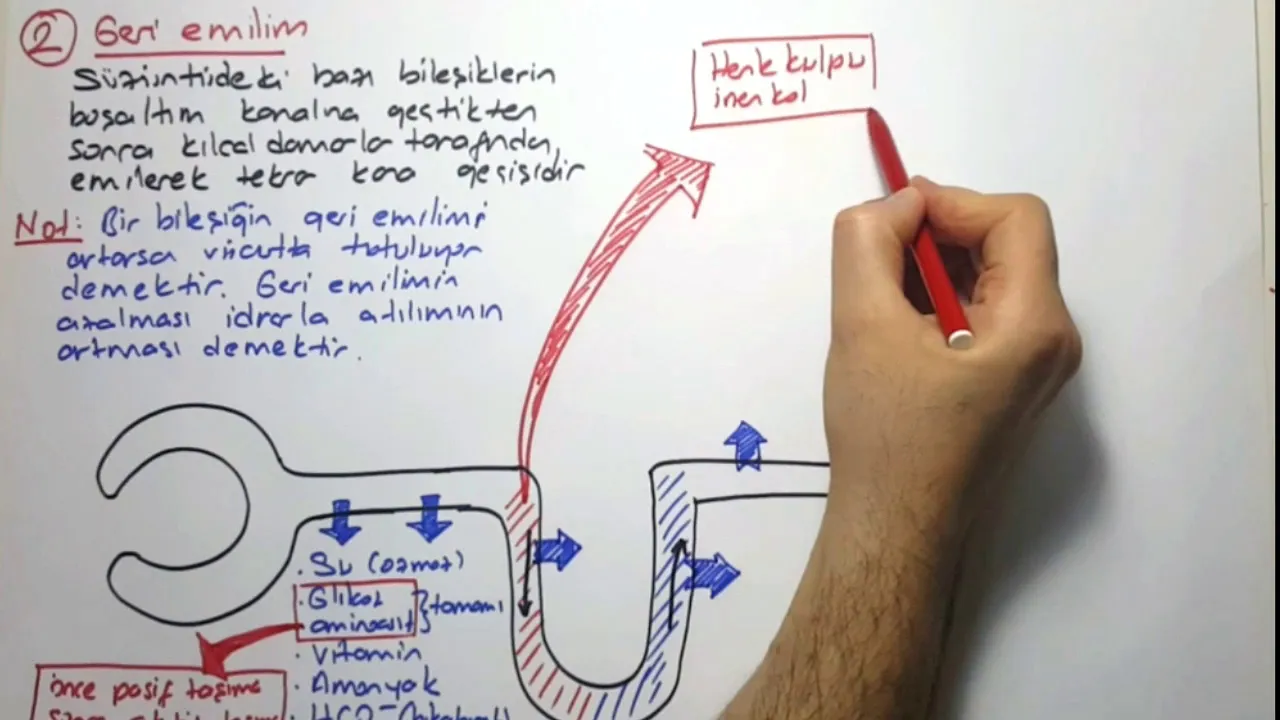 2 Geri emilim
Süzüntüdeki bazı bileşiklerin
boşaltım kanalına geçtikten
sonra kılcal damarla tarafından
emilerek tekra kana geçişidir
Not: Bir bileşiğin geri emilimi
artarsa vücutta tutuluyor
demektir. Geri emilimin
azalması idrarla atılımının
artması demektir.
Henle kulpu
inen kol
. Su (ozmoz)
. Glikoz
aminoasit } tamamı
. Vitamin
. Amonyak
. HCO
önce pasif taşıma